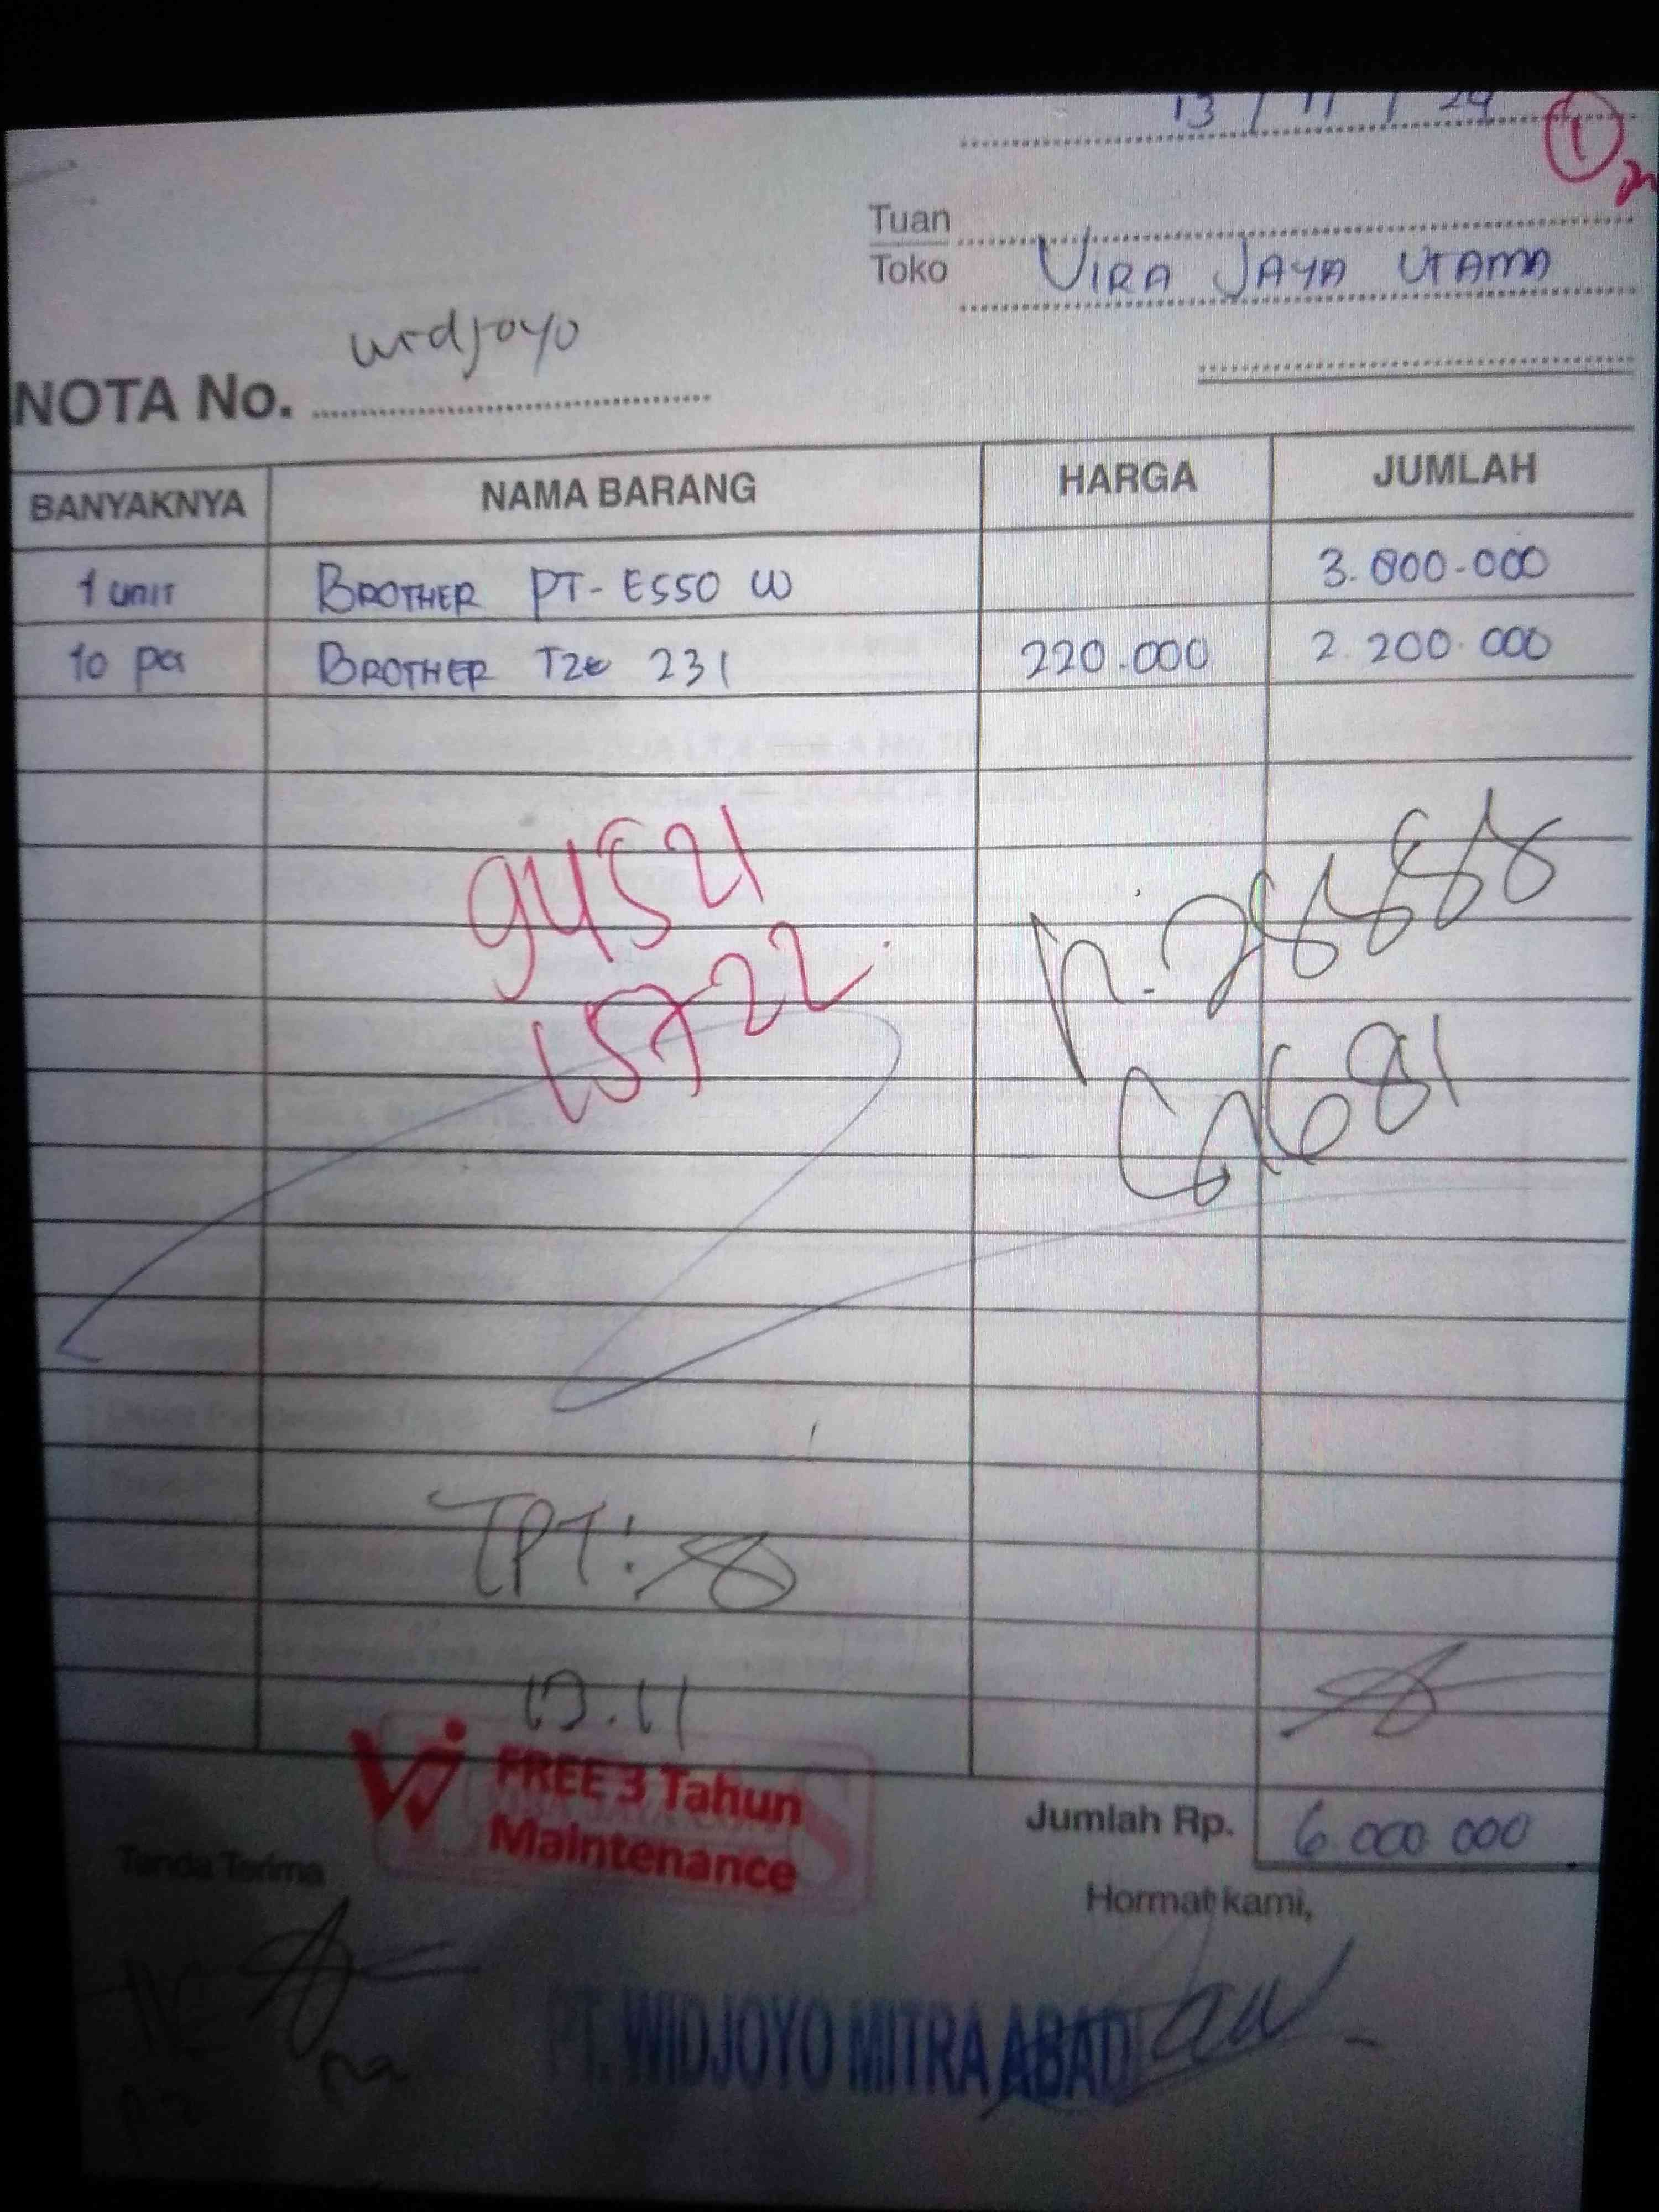 13 / 11 / 24
1
Tuan
Toko VIRA JAYA UTAMA
widjoyo
NOTA No.
BANYAKNYA NAMA BARANG HARGA JUMLAH
1 unit BROTHER PT-E550 W 3.800.000
10 pcs BROTHER Tze 231 220.000 2.200.000
94521
15722
681
TPT:
13.11
FREE 3 Tahun
Maintenance
Jumlah Rp. 6.000.000
Tanda Terima
Hormat kami,
PT. WIDJOYO MITRA ABADI